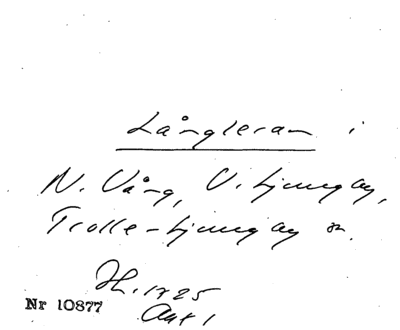 Långleran i
N. Vång, V. Ljungby,
Trolle-Ljungby m.
Hl. 1725
Akt 1
Nr 10877